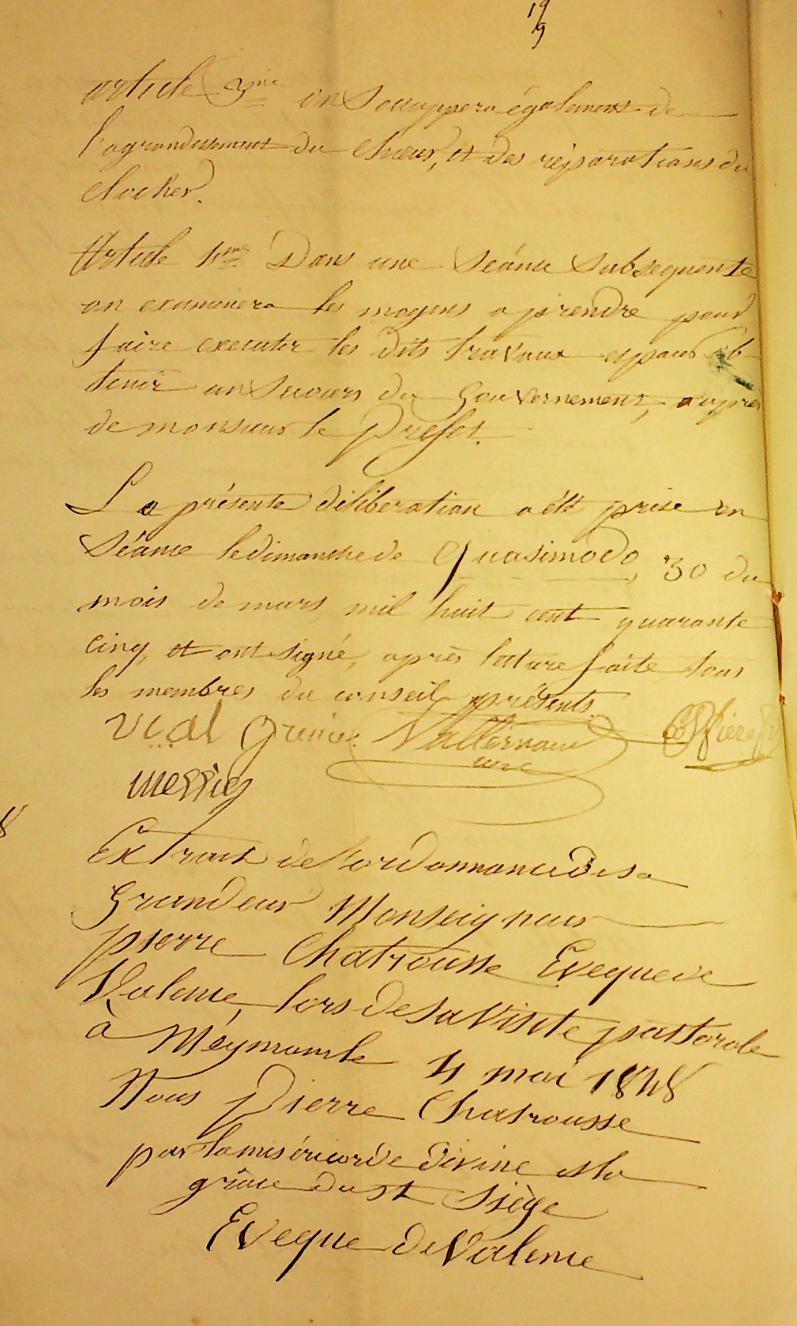 19
9
article 3me on s'occuppera également de
l'agrandissement du Chœur, et des réparations du
clocher.
Article 4me Dans une séance subsequente
on examinera les moyens a prendre pour
faire executer les dits travaux et pour ob-
tenir un secours du Gouvernement, auprès
de monsieur le Préfet.
La présente déliberation a été prise en
séance le dimanche de Quasimodo, 30 du
mois de mars, mil huit cent quarante
cinq, et ont signé, après lecture faite tous
les membres du conseil présents
Vial
curé
Extrait de l'ordonnance de sa
Grandeur Monseigneur
pierre Chatrousse Evequede
Valence, lors de sa visite pastorale
à Meymans le 4 mai 1848
Nous Pierre Chatrousse
par la miséricorde divine et la
grâce du St Siège
Eveque de Valence